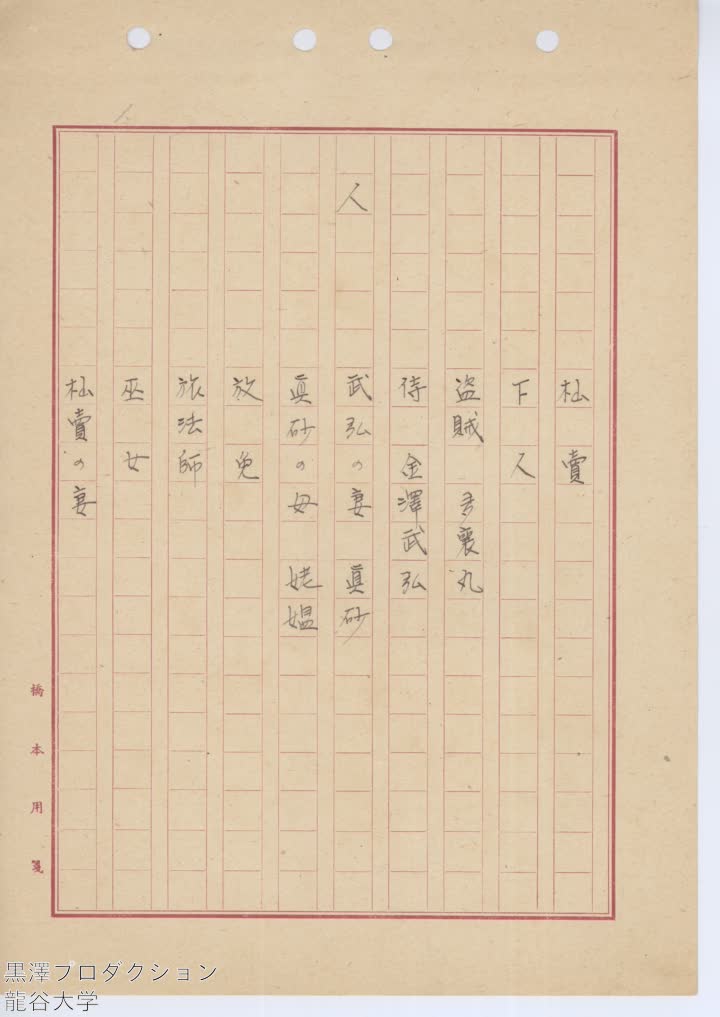 杣賣
下人
盗賊 多襄丸
侍 金澤武弘
人 武弘の妻 眞砂
眞砂の母 姥媼
放免
旅法師
巫女
杣賣の妻
橋本用箋
黒澤プロダクション
龍谷大学